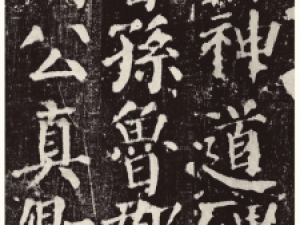 神道碑
孫魯郡
公真卿